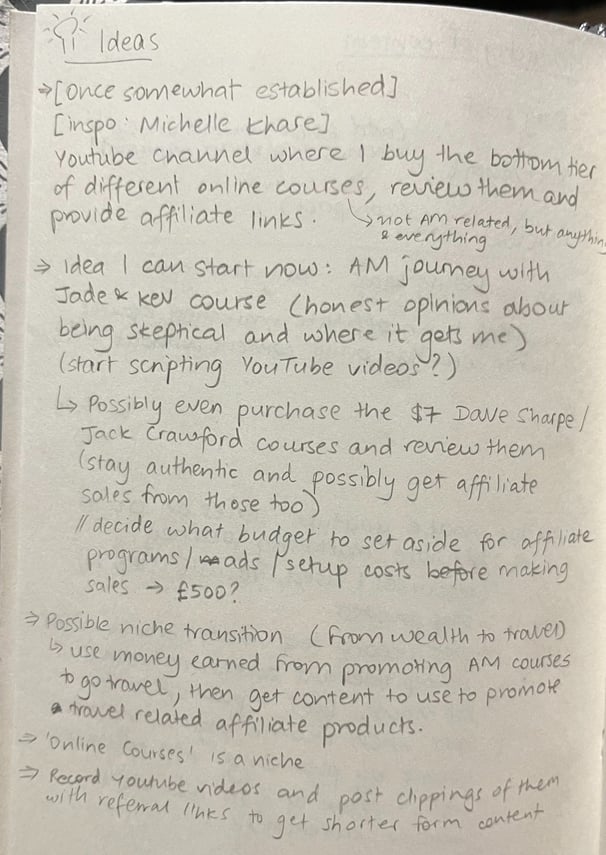 Ideas
⇒ [once somewhat established]
[inspo: Michelle Khare]
Youtube channel where I buy the bottom tier
of different online courses, review them and
provide affiliate links. ↳ not AM related, but anything
& everything
⇒ idea I can start now: AM journey with
Jade & Kev course (honest opinions about
being skeptical and where it gets me)
(start scripting YouTube videos?)
↳ Possibly even purchase the $7 Dave Sharpe/
Jack Crawford courses and review them
(stay authentic and possibly get affiliate
sales from those too)
// decide what budget to set aside for affiliate
programs / ads / setup costs before making
sales → £500?
⇒ Possible niche transition (from wealth to travel)
↳ use money earned from promoting AM courses
to go travel, then get content to use to promote
travel related affiliate products.
⇒ 'Online Courses' is a niche
⇒ Record Youtube videos and post clippings of them
with referral links to get shorter form content